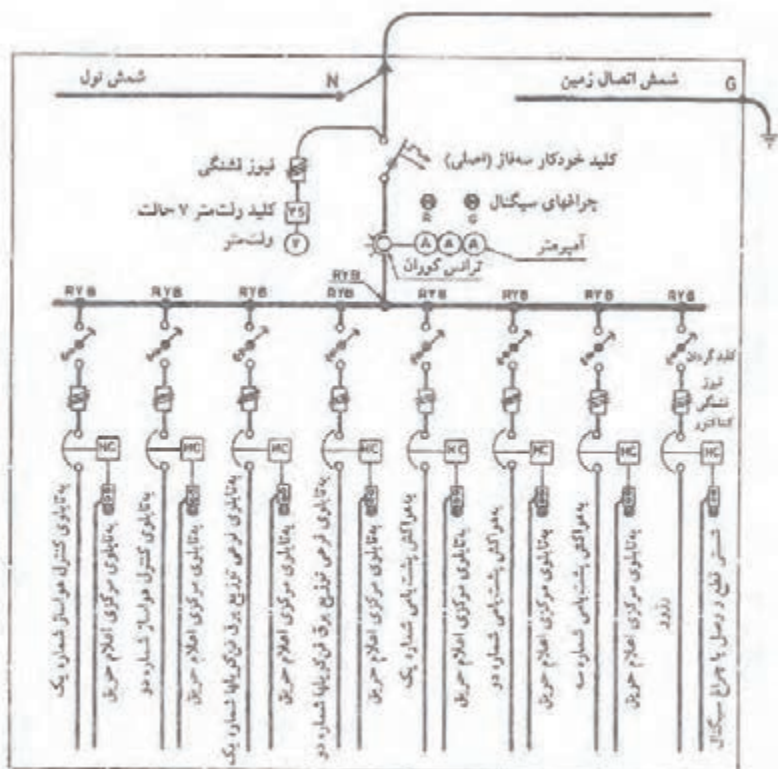 شمش نول
N
شمش اتصال زمین
G
کلید خودکار سه‌فاز (اصلی)
فیوز فشنگی
چراغهای سیگنال
R
G
کلید ولت‌متر ۷ حالت
VS
ولت‌متر
V
A A A
آمپرمتر
ترانس کوران
RYB
RYB RYB RYB RYB RYB RYB RYB RYB
کلید گردان
فیوز
فشنگی
کنتاکتور
MC MC MC MC MC MC MC MC
به‌تابلوی کنترل هواساز شماره یک
به‌تابلوی مرکزی اعلام حریق
به‌تابلوی کنترل هواساز شماره دو
به‌تابلوی مرکزی اعلام حریق
به‌تابلوی فرعی توزیع برق فن‌کویلها شماره یک
به‌تابلوی مرکزی اعلام حریق
به‌تابلوی فرعی توزیع برق فن‌کویلها شماره دو
به‌تابلوی مرکزی اعلام حریق
به‌هواکش پشت‌بامی شماره یک
به‌تابلوی مرکزی اعلام حریق
به‌هواکش پشت‌بامی شماره دو
به‌تابلوی مرکزی اعلام حریق
به‌هواکش پشت‌بامی شماره سه
به‌تابلوی مرکزی اعلام حریق
رزرو
شستی قطع و وصل با چراغ سیگنال